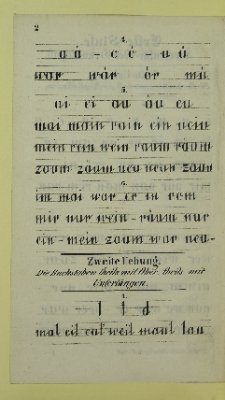 2
4.
war wär ör mü
5.
ai ei au äu eu
mai main rain ein nein
mein rein wein raum räum
zaum zäum neu neun zaun
6.
im mai war er in rom
mir nur wein - räum nur
ein - mein zaum war neu -
Zweite Uebung.
Die Buchstaben theils mit Ober- theils mit
Unterlängen.
1.
l t d
mal eil weil maul lau